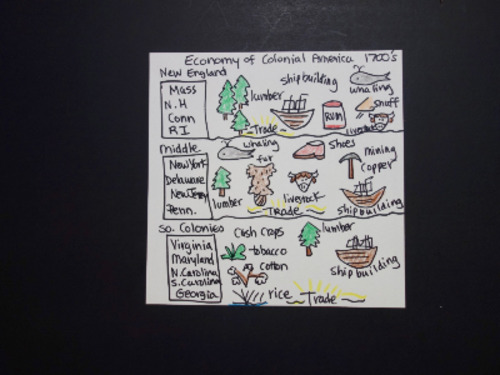 Economy of Colonial America 1700's
New England
Mass
N.H
Conn
R.I
lumber
shipbuilding
whaling
Rum
snuff
livestock
Trade
middle
New York
Delaware
New Jersy
Penn.
whaling
fur
shoes
mining
copper
lumber
livestock
Trade
shipbuilding
So. Colonies
Virginia
Maryland
N. Carolina
S. Carolina
Georgia
Cash Crops
tobacco
cotton
rice
lumber
ship building
Trade